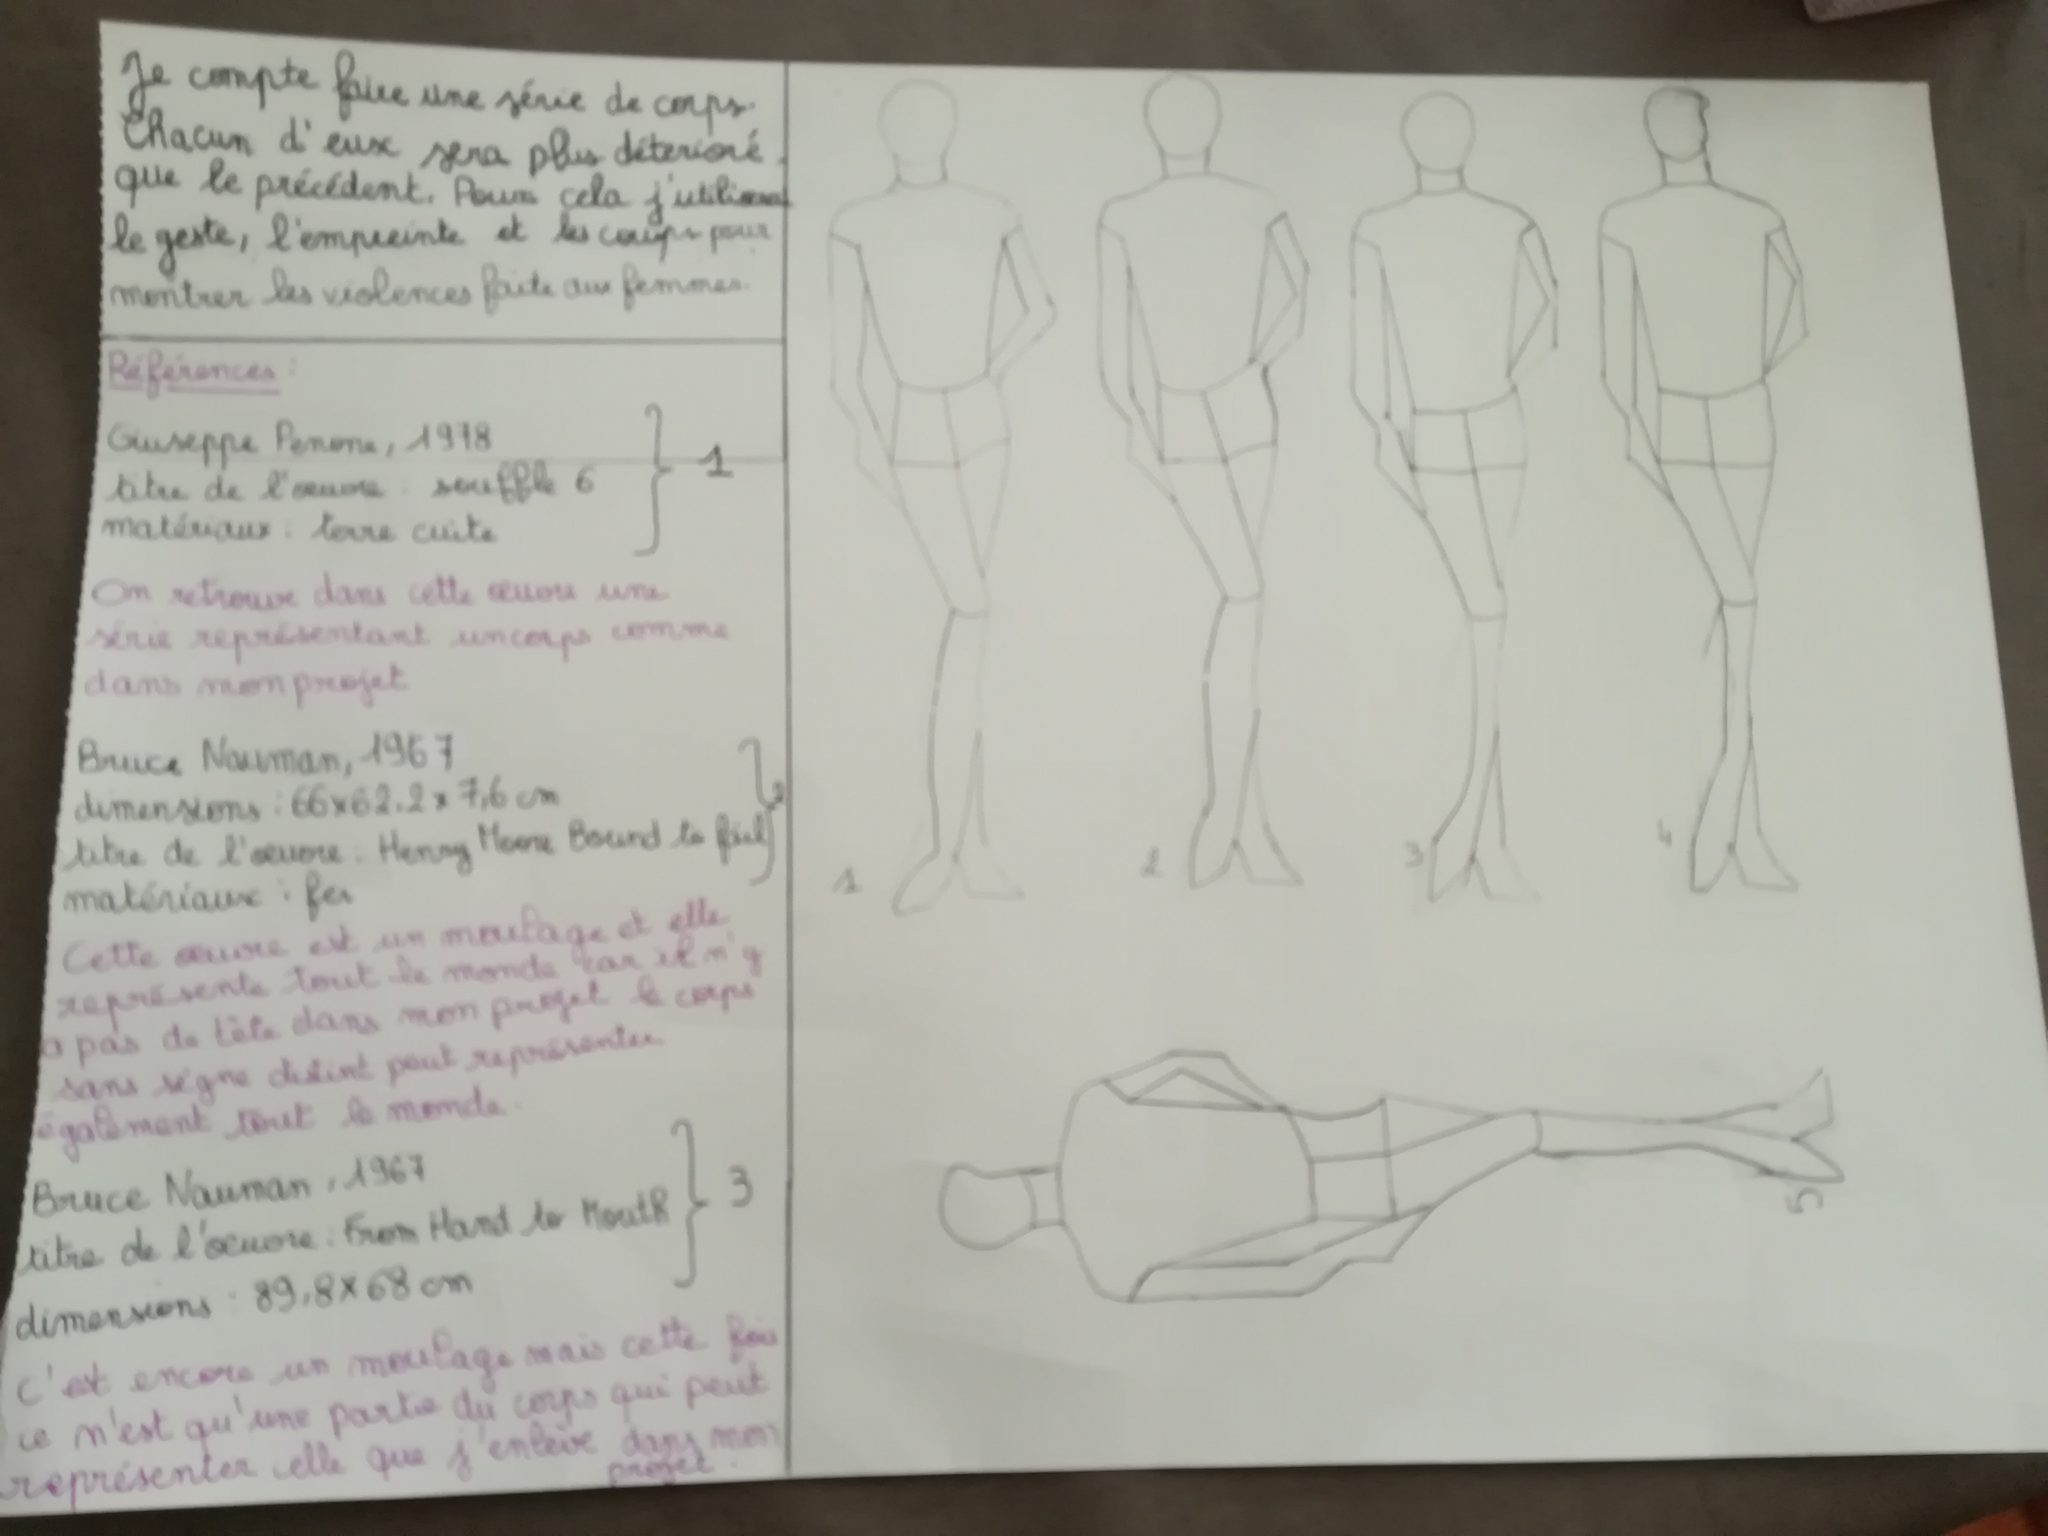 Je compte faire une série de corps.
Chacun d'eux sera plus déterioré
que le précédent. Pour cela j'utiliserai
le geste, l'empreinte et les coups pour
montrer les violences faite aux femmes.
Références :
Giuseppe Penone, 1978
titre de l'œuvre : souffle 6
matériaux : terre cuite
1
On retrouve dans cette œuvre une
série représentant un corps comme
dans mon projet
Bruce Nauman, 1967
dimensions : 66x62.2x7,6 cm
titre de l'œuvre : Henry Moore Bound to fail
matériaux : fer
2
Cette œuvre est un moulage et elle
représente tout le monde car il n'y
a pas de tête dans mon projet le corps
sans signe distint peut représenter
également tout le monde.
Bruce Nauman, 1967
titre de l'œuvre : From Hand to Mouth
dimensions : 89,8x68 cm
3
C'est encore un moulage mais cette fois
ce n'est qu'une partie du corps qui peut
représenter elle que j'enlève dans mon
projet.
1
2
3
4
5